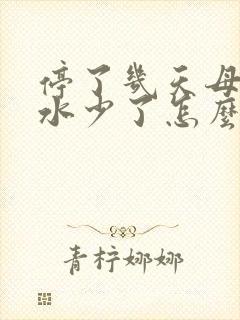 停了幾天母
水少了怎麼
青柠娜娜